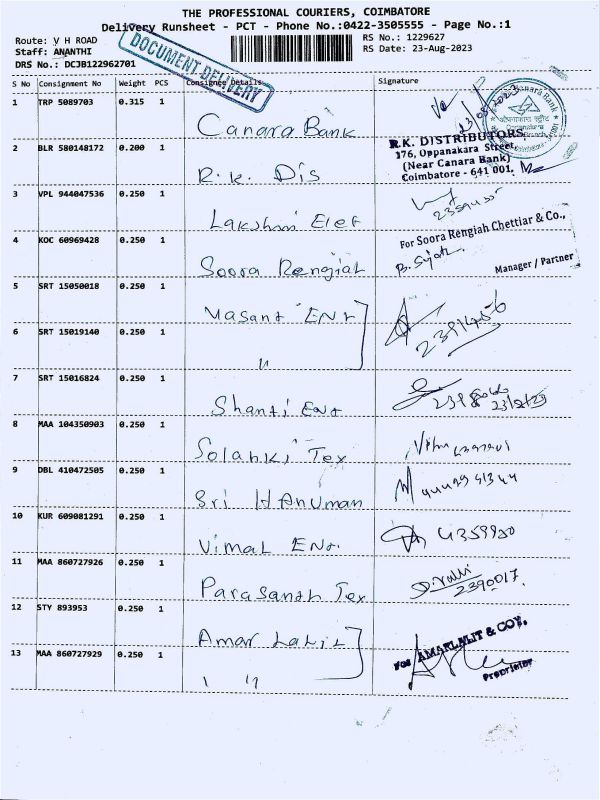 THE PROFESSIONAL COURIERS, COIMBATORE
Delivery Runsheet - PCT - Phone No.:0422-3505555 - Page No.:1
Route: V H ROAD
Staff: ANANTHI
DRS No.: DCJB122962701
RS No.: 1229627
RS Date: 23-Aug-2023
DOCUMENT DELIVERY
S No Consignment No Weight PCS Consignee Details Signature
1 TRP 5089703 0.315 1 Canara Bank
2 BLR 580148172 0.200 1 R.K. Dis
R.K. DISTRIBUTORS
176, Oppanakara Street,
(Near Canara Bank)
Coimbatore - 641 001.
3 VPL 944047536 0.250 1 Lakshmi Elec
4 KOC 60969428 0.250 1 Soora Rengiah
For Soora Rengiah Chettiar & Co.,
B. Sujatha
Manager / Partner
5 SRT 15050018 0.250 1 Vasant Ent
6 SRT 15019140 0.250 1 "
2391456
7 SRT 15016824 0.250 1 Shanti Ent
23/8/23
8 MAA 104350903 0.250 1 Solanki Tex
9 DBL 410472505 0.250 1 Sri Hanuman
10 KUR 609081291 0.250 1 Vimal Ent.
4359920
11 MAA 860727926 0.250 1 Parasanth Tex
2390017.
12 STY 893953 0.250 1 Amar Lalit
13 MAA 860727929 0.250 1 " "
For AMARLALIT & COY.
Proprietor